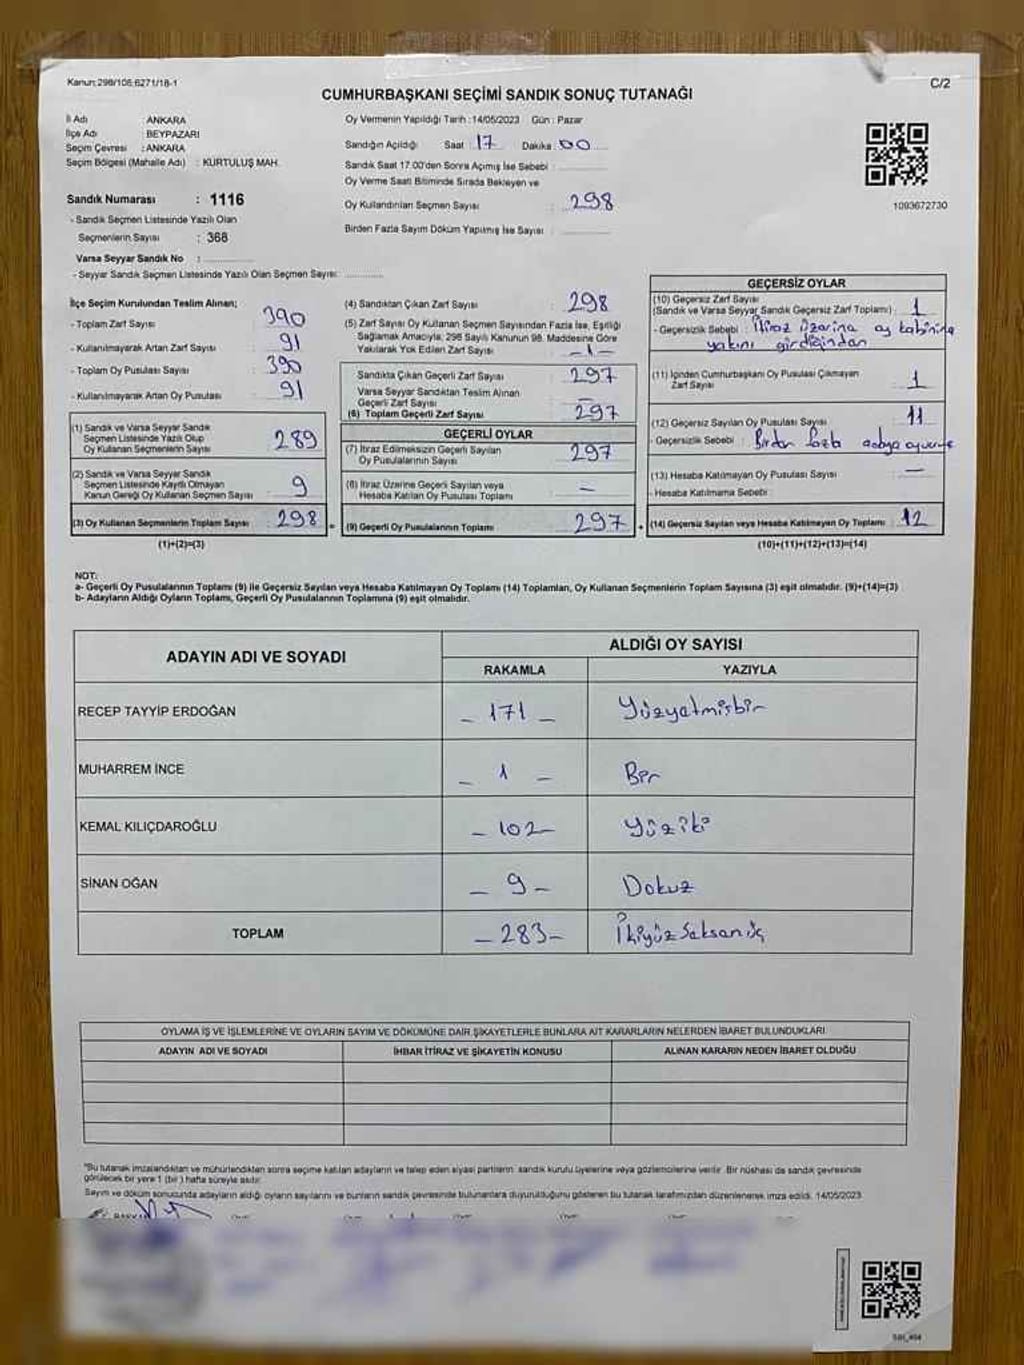 Kanun: 298/106 6271/18-1
C/2
CUMHURBAŞKANI SEÇİMİ SANDIK SONUÇ TUTANAĞI
İl Adı : ANKARA
İlçe Adı : BEYPAZARI
Seçim Çevresi : ANKARA
Seçim Bölgesi (Mahalle Adı) : KURTULUŞ MAH.
Sandık Numarası : 1116
- Sandık Seçmen Listesinde Yazılı Olan
Seçmenlerin Sayısı : 368
Varsa Seyyar Sandık No :
- Seyyar Sandık Seçmen Listesinde Yazılı Olan Seçmen Sayısı:
Oy Vermenin Yapıldığı Tarih : 14/05/2023 Gün : Pazar
Sandığın Açıldığı Saat : 17 Dakika : 00
Sandık Saat 17.00'den Sonra Açılmış İse Sebebi :
Oy Verme Saati Bitiminde Sırada Bekleyen ve
Oy Kullandırılan Seçmen Sayısı : 298
Birden Fazla Sayım Döküm Yapılmış İse Sayısı :
1093672730
İlçe Seçim Kurulundan Teslim Alınan;
- Toplam Zarf Sayısı : 390
- Kullanılmayarak Artan Zarf Sayısı : 91
- Toplam Oy Pusulası Sayısı : 390
- Kullanılmayarak Artan Oy Pusulası : 91
(1) Sandık ve Varsa Seyyar Sandık
Seçmen Listesinde Yazılı Olup
Oy Kullanan Seçmenlerin Sayısı : 289
(2) Sandık ve Varsa Seyyar Sandık
Seçmen Listesinde Kayıtlı Olmayan
Kanun Gereği Oy Kullanan Seçmen Sayısı : 9
(3) Oy Kullanan Seçmenlerin Toplam Sayısı : 298
(1)+(2)=(3)
(4) Sandıktan Çıkan Zarf Sayısı : 298
(5) Zarf Sayısı Oy Kullanan Seçmen Sayısından Fazla İse, Eşitliği
Sağlamak Amacıyla; 298 Sayılı Kanunun 98. Maddesine Göre
Yakılarak Yok Edilen Zarf Sayısı : -1-
Sandıkta Çıkan Geçerli Zarf Sayısı : 297
Varsa Seyyar Sandıktan Teslim Alınan
Geçerli Zarf Sayısı : -
(6) Toplam Geçerli Zarf Sayısı : 297
GEÇERLİ OYLAR
(7) İtiraz Edilmeksizin Geçerli Sayılan
Oy Pusulalarının Sayısı : 297
(8) İtiraz Üzerine Geçerli Sayılan veya
Hesaba Katılan Oy Pusulası Toplamı : -
(9) Geçerli Oy Pusulalarının Toplamı : 297
GEÇERSİZ OYLAR
(10) Geçersiz Zarf Sayısı
(Sandık ve Varsa Seyyar Sandık Geçersiz Zarf Toplamı) : 1
- Geçersizlik Sebebi : İtiraz üzerine oy kabinine
yakını girdiğinden
(11) İçinden Cumhurbaşkanı Oy Pusulası Çıkmayan
Zarf Sayısı : 1
(12) Geçersiz Sayılan Oy Pusulası Sayısı : 11
- Geçersizlik Sebebi : Birden fazla adaya
(13) Hesaba Katılmayan Oy Pusulası Sayısı : -
- Hesaba Katılmama Sebebi :
(14) Geçersiz Sayılan veya Hesaba Katılmayan Oy Toplamı : 12
(10)+(11)+(12)+(13)=(14)
NOT:
a- Geçerli Oy Pusulalarının Toplamı (9) ile Geçersiz Sayılan veya Hesaba Katılmayan Oy Toplamı (14) Toplamları, Oy Kullanan Seçmenlerin Toplam Sayısına (3) eşit olmalıdır. (9)+(14)=(3)
b- Adayların Aldığı Oyların Toplamı, Geçerli Oy Pusulalarının Toplamına (9) eşit olmalıdır.
ADAYIN ADI VE SOYADI
ALDIĞI OY SAYISI
RAKAMLA YAZIYLA
RECEP TAYYİP ERDOĞAN - 171 - Yüzyetmişbir
MUHARREM İNCE - 1 - Bir
KEMAL KILIÇDAROĞLU - 102 - Yüziki
SİNAN OĞAN - 9 - Dokuz
TOPLAM - 283 - İkiyüzseksanüç
OYLAMA İŞ VE İŞLEMLERİNE VE OYLARIN SAYIM VE DÖKÜMÜNE DAİR ŞİKAYETLERLE BUNLARA AİT KARARLARIN NELERDEN İBARET BULUNDUKLARI
ADAYIN ADI VE SOYADI İHBAR İTİRAZ VE ŞİKAYETİN KONUSU ALINAN KARARIN NEDEN İBARET OLDUĞU
"Bu tutanak imzalandıktan ve mühürlendikten sonra seçime katılan adayların ve talep eden siyasi partilerin sandık kurulu üyelerine veya gözlemcilerine verilir. Bir nüshası da sandık çevresinde
görülecek bir yere 1 (bir) hafta süreyle asılır.
Sayım ve döküm sonucunda adayların aldığı oyların sayılarını ve bunların sandık çevresinde bulunanlara duyurulduğunu gösteren bu tutanak tarafımızdan düzenlenerek imza edildi. 14/05/2023